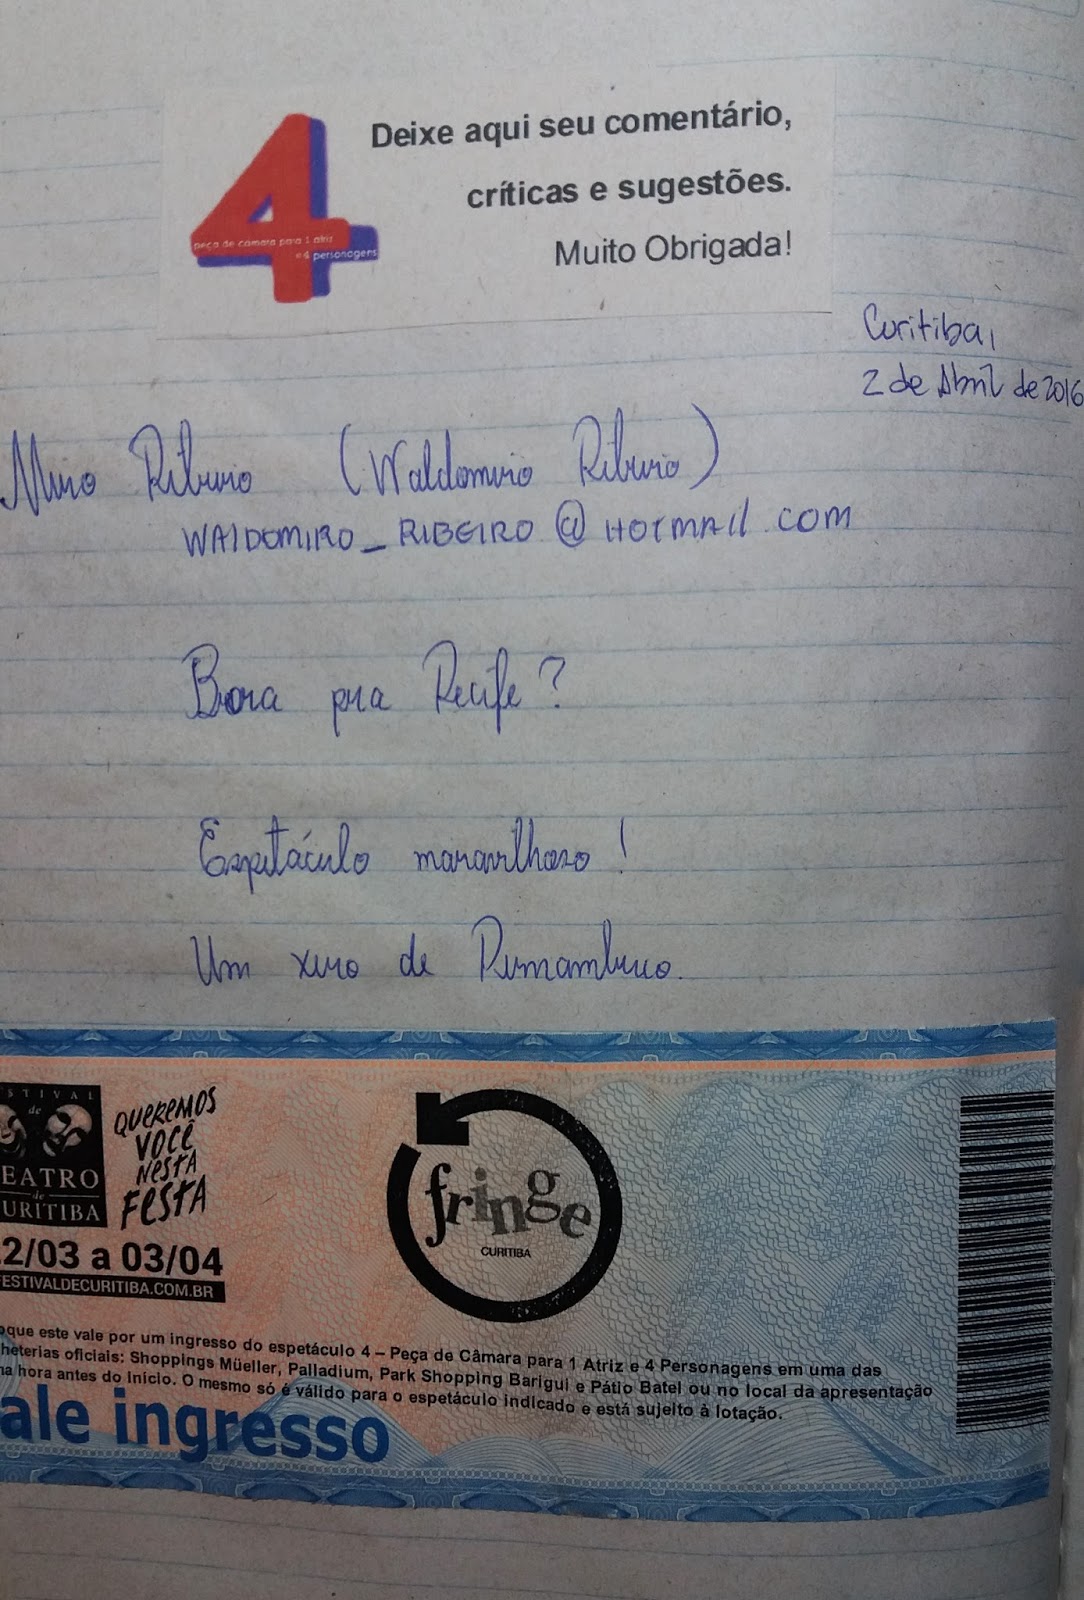 4
peça de câmara para 1 atriz
e 4 personagens
Deixe aqui seu comentário,
críticas e sugestões.
Muito Obrigada!
Curitiba,
2 de Abril de 2016
Miro Ribeiro (Waldomiro Ribeiro)
WALDOMIRO_RIBEIRO@HOTMAIL.COM
Bora pra Recife?
Espetáculo maravilhoso!
Um xero de Pernambuco.
STIVAL
de
EATRO
de
URITIBA
QUEREMOS
VOCÊ
NESTA
FESTA
2/03 a 03/04
ESTIVALDECURITIBA.COM.BR
fringe
CURITIBA
oque este vale por um ingresso do espetáculo 4 – Peça de Câmara para 1 Atriz e 4 Personagens em uma das
heterias oficiais: Shoppings Müeller, Palladium, Park Shopping Barigui e Pátio Batel ou no local da apresentação
a hora antes do início. O mesmo só é válido para o espetáculo indicado e está sujeito à lotação.
ale ingresso